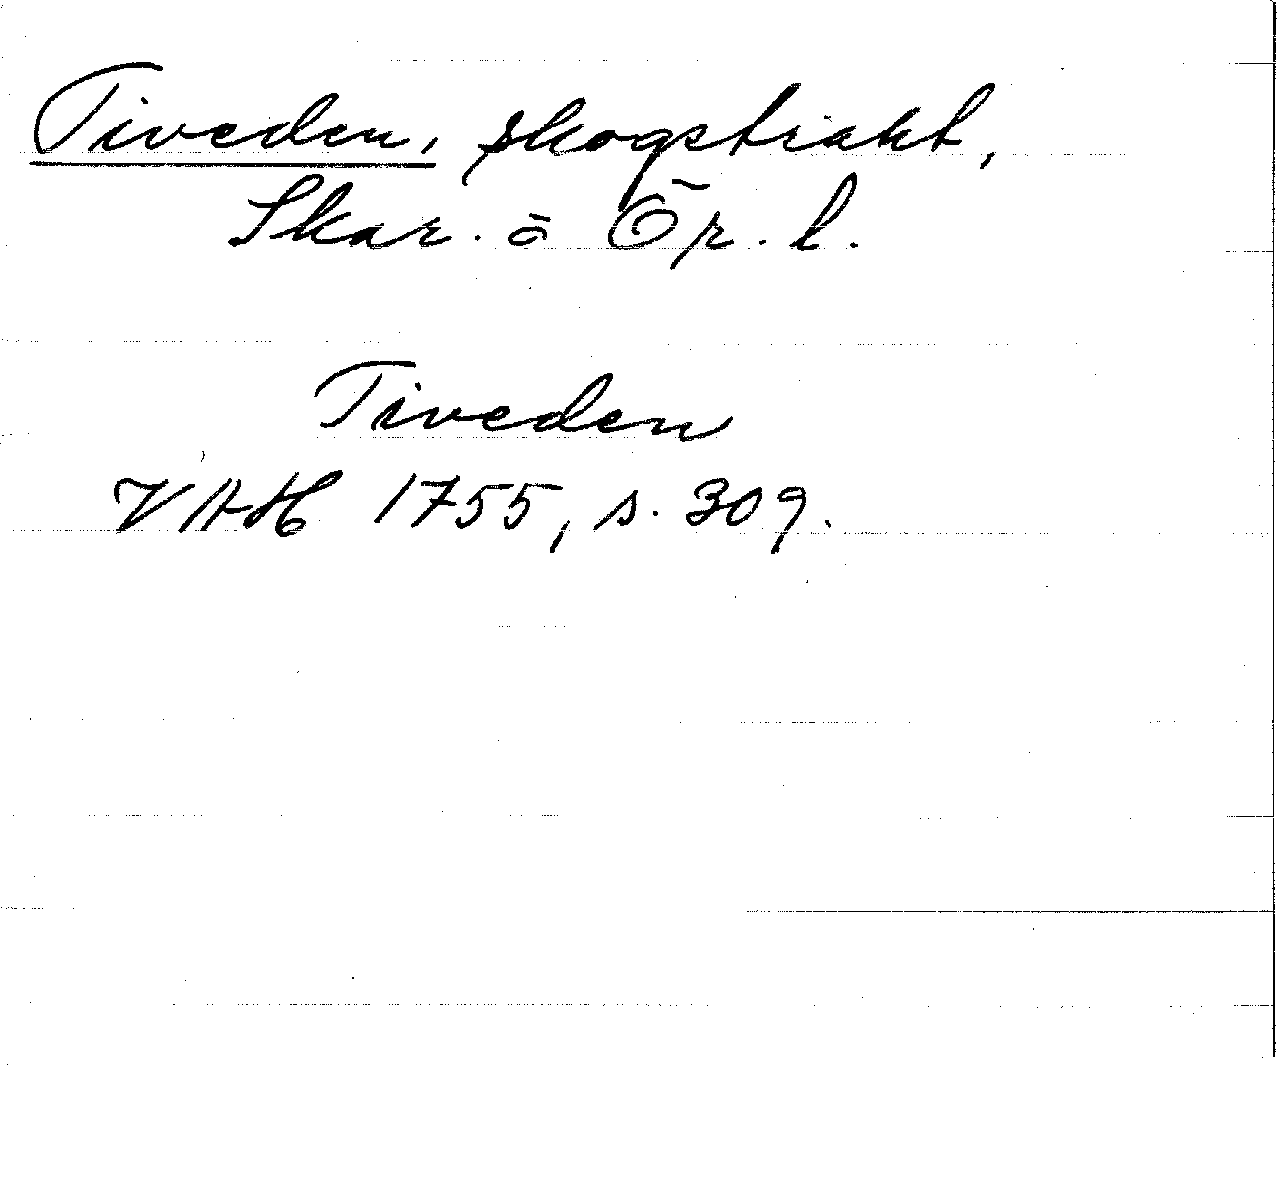 Tiveden, skogstrakt,
Skar. o Ör. l.
Tiveden
VAH 1755, s. 309.